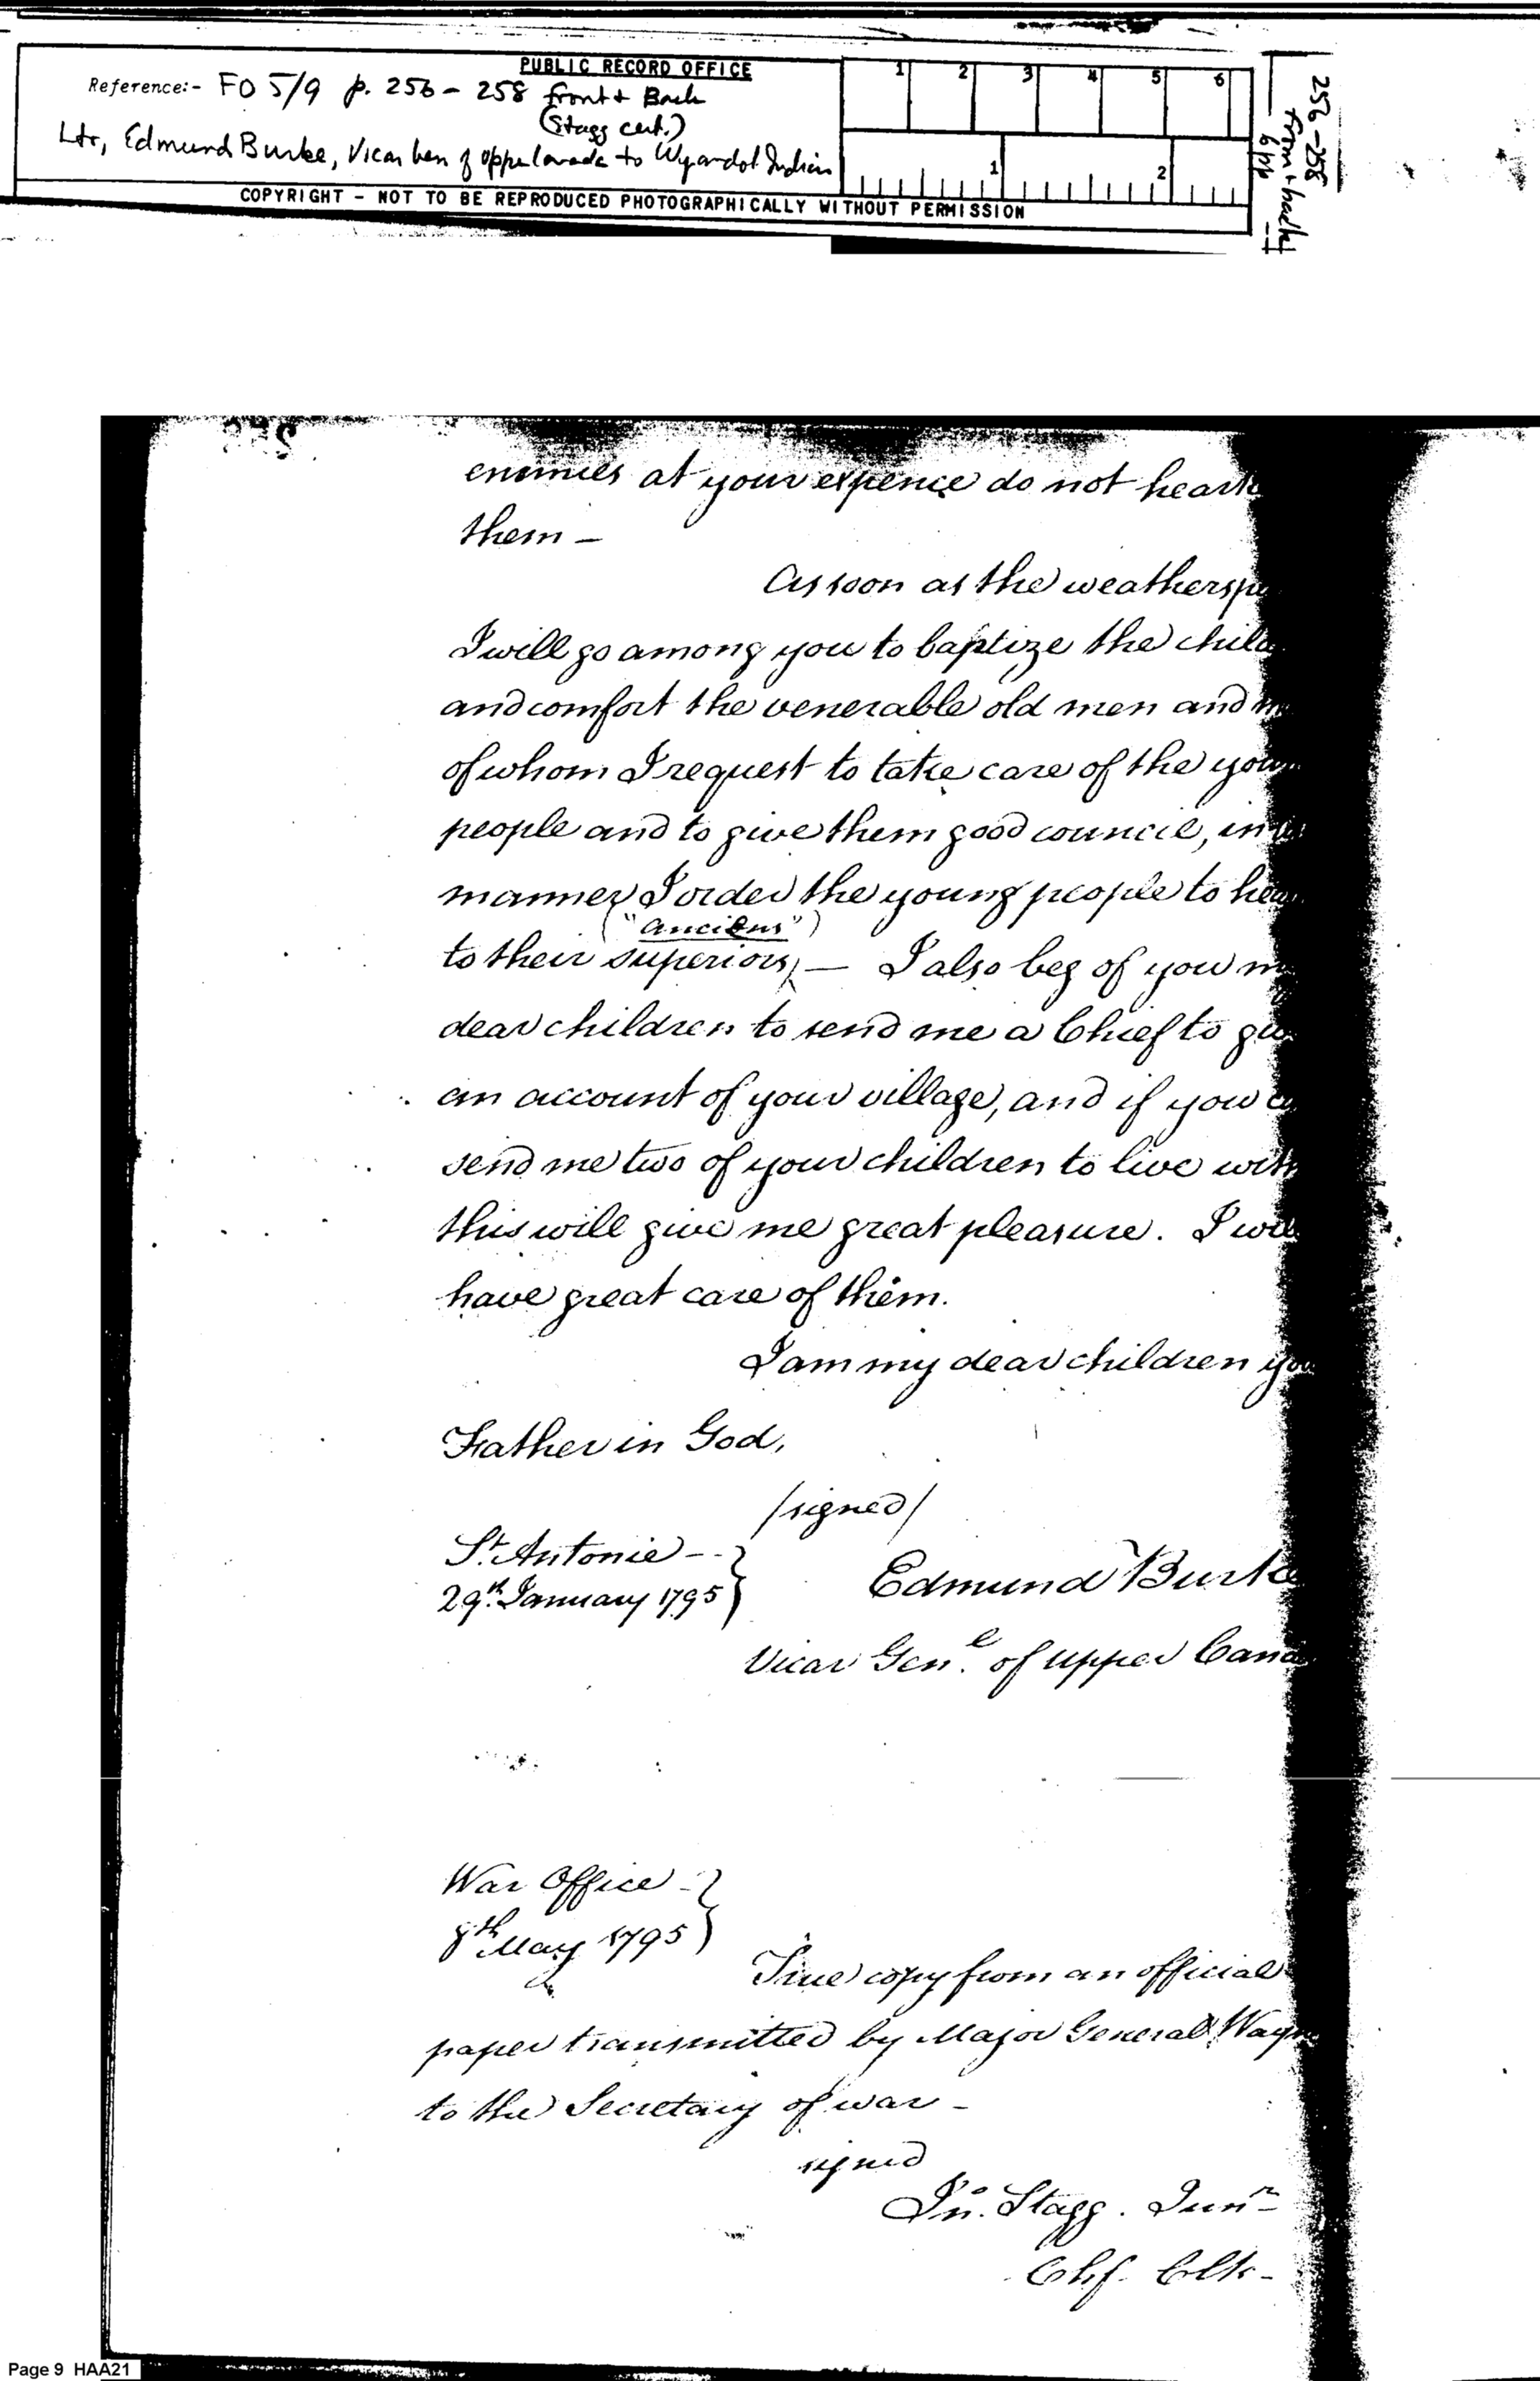 PUBLIC RECORD OFFICE
Reference:- FO 5/9 p. 256 - 258 front + Back
(Stagg cert.)
Ltr, Edmund Burke, Vicar Gen of Upper Canada to Wyandot Indian
COPYRIGHT - NOT TO BE REPRODUCED PHOTOGRAPHICALLY WITHOUT PERMISSION
1 2 3 4 5 6
1 2
256-258
front + back
6 pp
enimies at your expence do not heark
them –
As soon as the weather
I will go among you to baptize the child
and comfort the venerable old men and
of whom I request to take care of the youn
people and to give them good council, in
manner I order the young people to hea
("Anciens")
to their superiors, — I also beg of you m
dear children to send me a Chief to gi
an account of your village, and if you
send me two of your children to live with
this will give me great pleasure. I will
have great care of them.
I am my dear children you
Father in God,
/signed/
St. Antonie - -
29th. January 1795
Edmund Burke
Vicar Genl. of upper Cana
War Office -
8th May 1795
True copy from an official
paper transmitted by Major General Wayn
to the Secretary of war -
signed
Jno. Stagg. Junr
Chf. Clk -
Page 9 HAA21